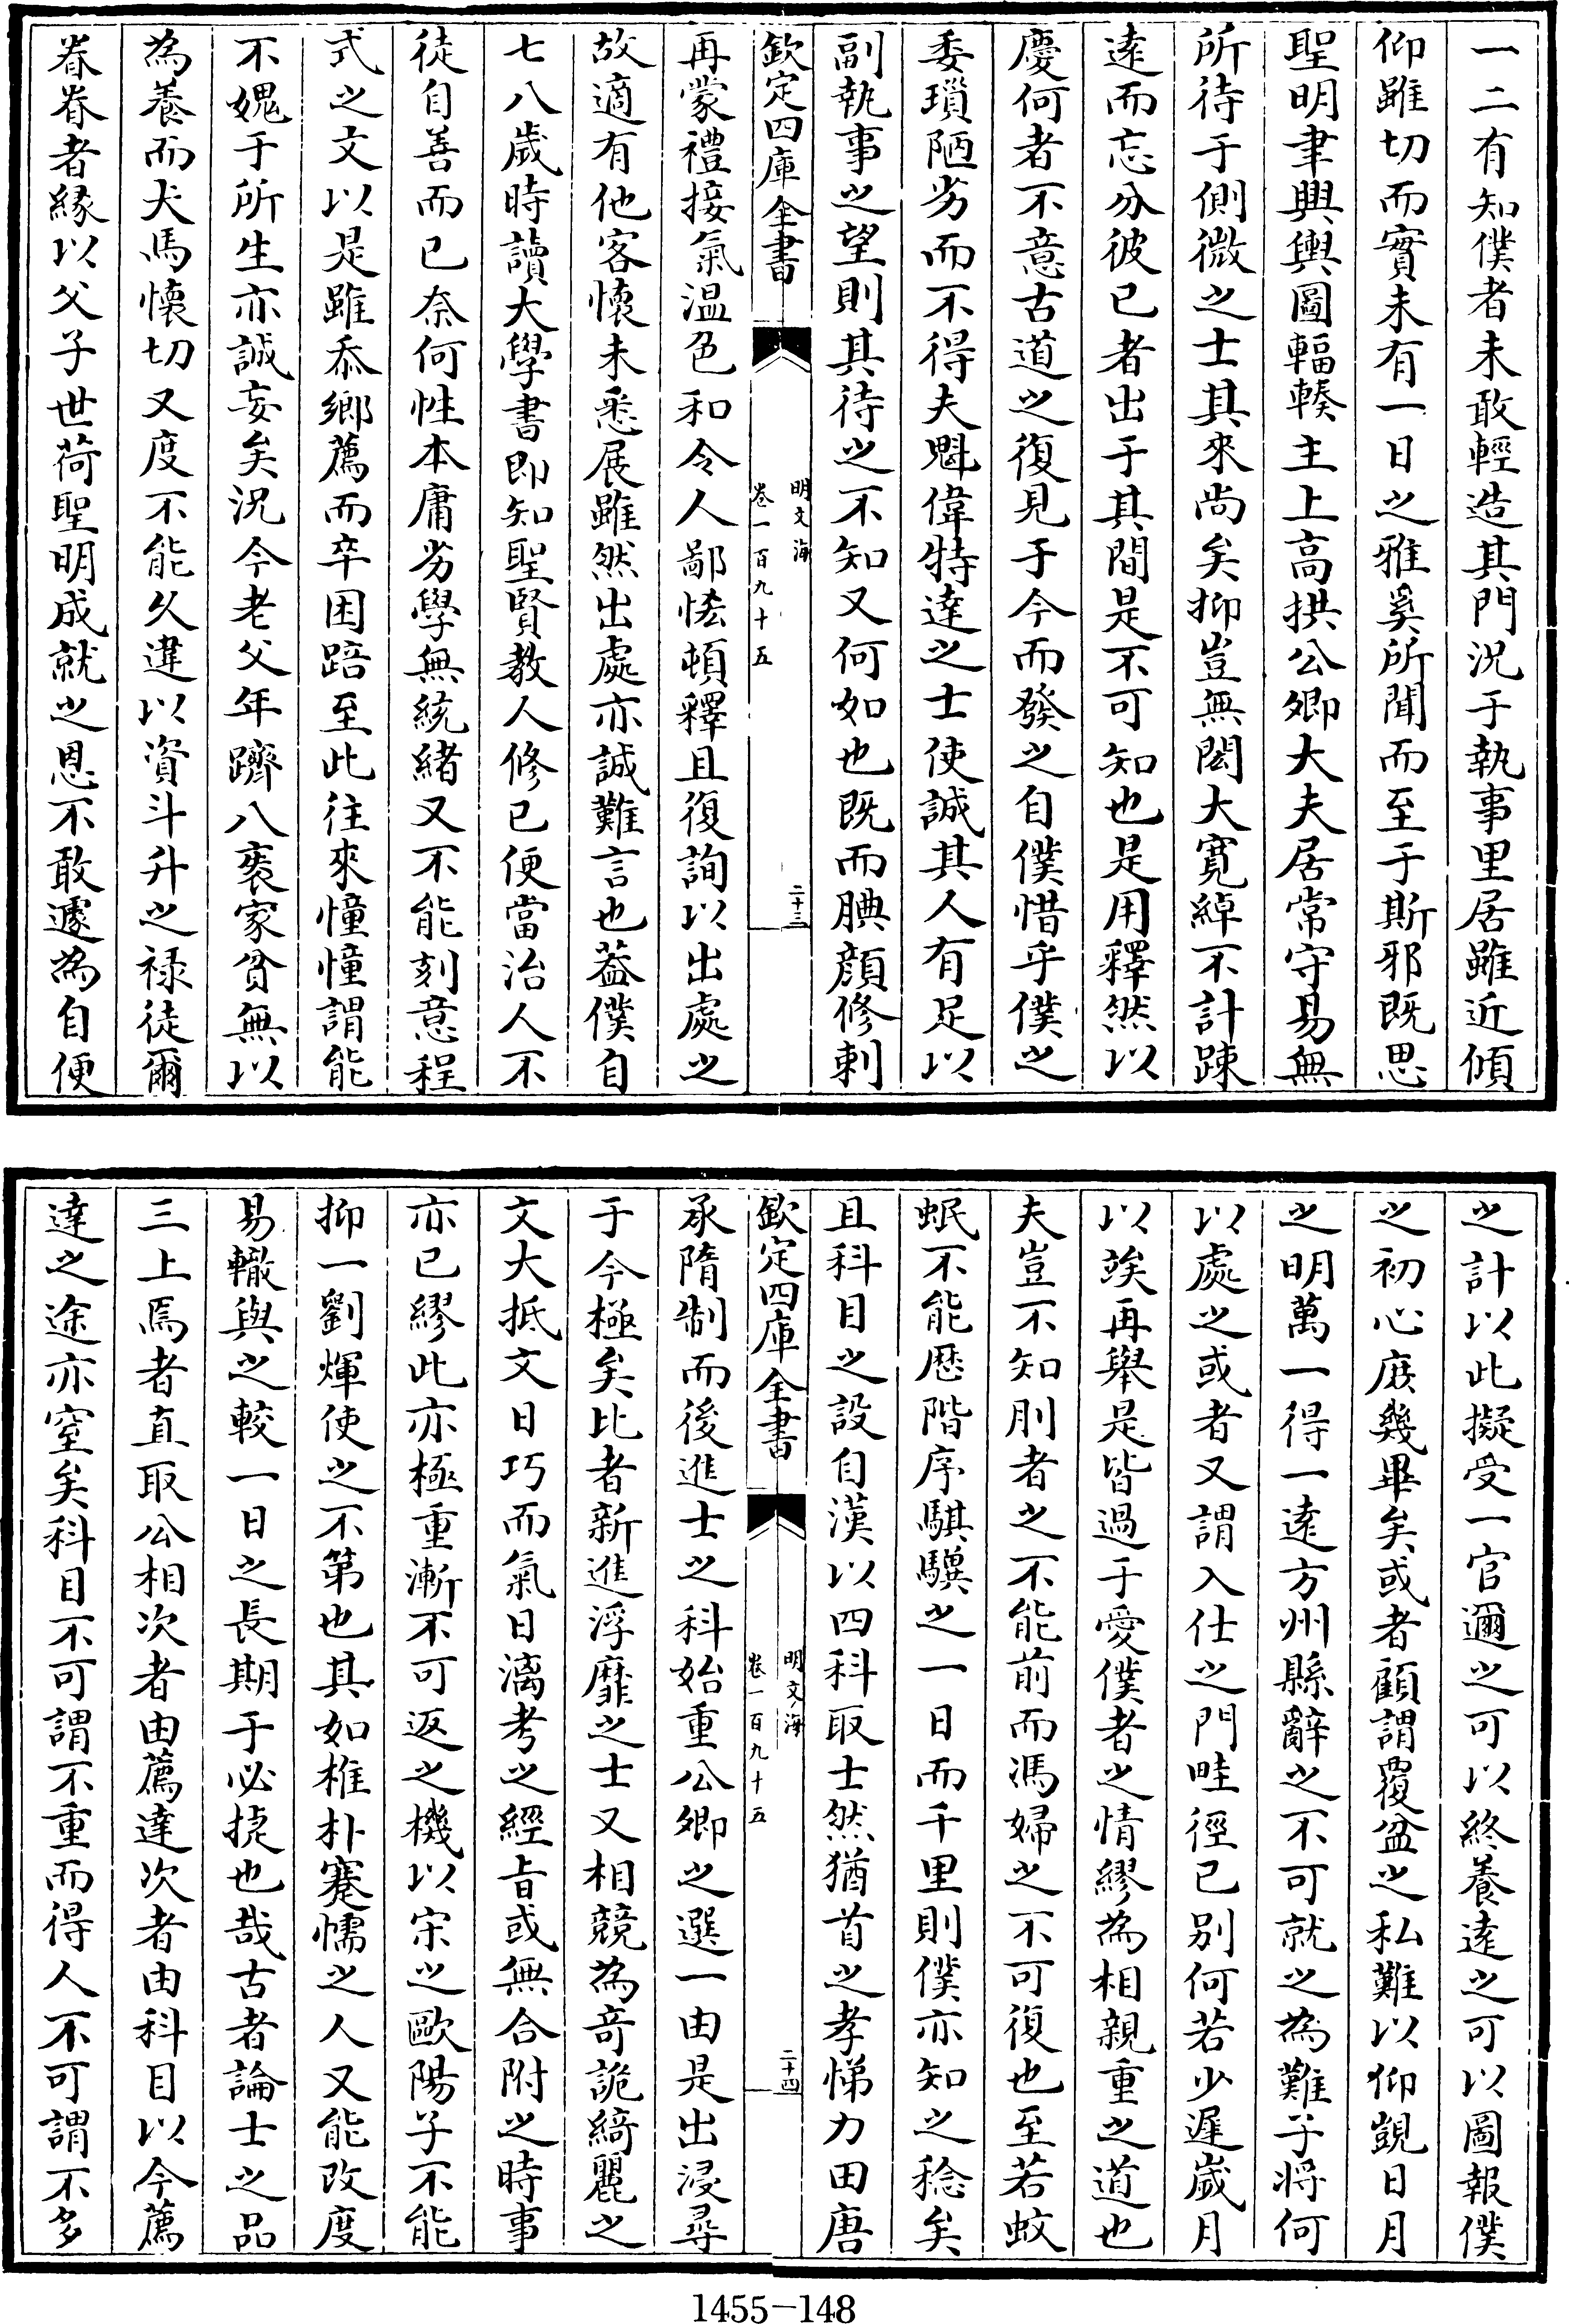 一二有知僕者未敢輕造其門況于執事里居雖近傾
仰雖切而實未有一日之雅奚所聞而至于斯邪既思
聖明聿興輿圖輻輳主上高拱公卿大夫居常守易無
所待于側微之士其來尚矣抑豈無閎大寛綽不計踈
逺而忘分彼已者出于其間是不可知也是用釋然以
慶何者不意古道之復見于今而發之自僕惜乎僕之
委瑣陋劣而不得夫魁偉特達之士使誠其人有足以
副執事之望則其待之不知又何如也既而腆顔修剌
欽定四庫全書
明文海
卷一百九十五
二十三
再蒙禮接氣温色和令人鄙恡頓釋且復詢以出處之
故適有他客懷未悉展雖然出處亦誠難言也葢僕自
七八歲時讀大學書即知聖賢教人修已便當治人不
徒自善而已奈何性本庸劣學無統緒又不能刻意程
式之文以是雖忝鄉薦而卒困踣至此往來憧憧謂能
不媿于所生亦誠妄矣況今老父年躋八褱家貧無以
為養而犬馬懷切又度不能久違以資斗升之禄徒爾
眷眷者緣以父子世荷聖明成就之恩不敢遽為自便
之計以此擬受一官邇之可以終養逺之可以圖報僕
之初心庶幾畢矣或者顧謂覆盆之私難以仰覬日月
之明萬一得一逺方州縣辭之不可就之為難子将何
以處之或者又謂入仕之門畦徑已别何若少遲嵗月
以竢再舉是皆過于愛僕者之情繆為相親重之道也
夫豈不知刖者之不能前而馮婦之不可復也至若蚊
蜺不能厯階序騏驥之一日而千里則僕亦知之稔矣
且科目之設自漢以四科取士然猶首之孝悌力田唐
欽定四庫全書
明文海
卷一百九十五
二十四
承隋制而後進士之科始重公卿之選一由是出浸尋
于今極矣比者新進浮靡之士又相競為奇詭綺麗之
文大抵文日巧而氣日漓考之經旨或無合附之時事
亦已繆此亦極重漸不可返之機以宋之歐陽子不能
抑一劉煇使之不第也其如椎朴蹇懦之人又能改度
易轍與之較一日之長期于必捷也哉古者論士之品
三上焉者直取公相次者由薦達次者由科目以今薦
達之途亦窒矣科目不可謂不重而得人不可謂不多
1455-148